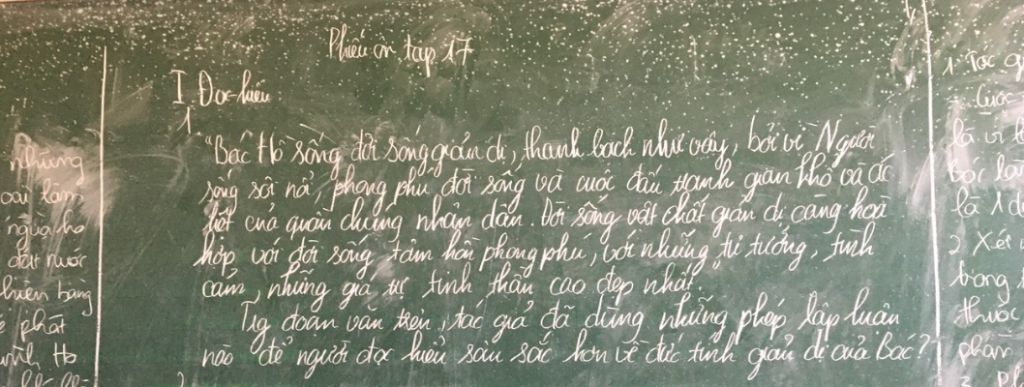 Phiếu ôn tập 17
I. Đọc-hiểu
1.
"Bác Hồ sống đời sống giản dị, thanh bạch như vậy, bởi vì Người
sống sôi nổi, phong phú đời sống và cuộc đấu tranh gian khổ và ác
liệt của quần chúng nhân dân. Đời sống vật chất giản dị càng hoà
hợp với đời sống tâm hồn phong phú, với những tư tưởng, tình
cảm, những giá trị tinh thần cao đẹp nhất.
Trg đoạn văn trên, tác giả đã dùng những phép lập luận
nào để người đọc hiểu sâu sắc hơn về đức tính giản dị của Bác?
những
đất nước
phát
Hồ
1. Tác
là
2. Xét
trong
thuộc